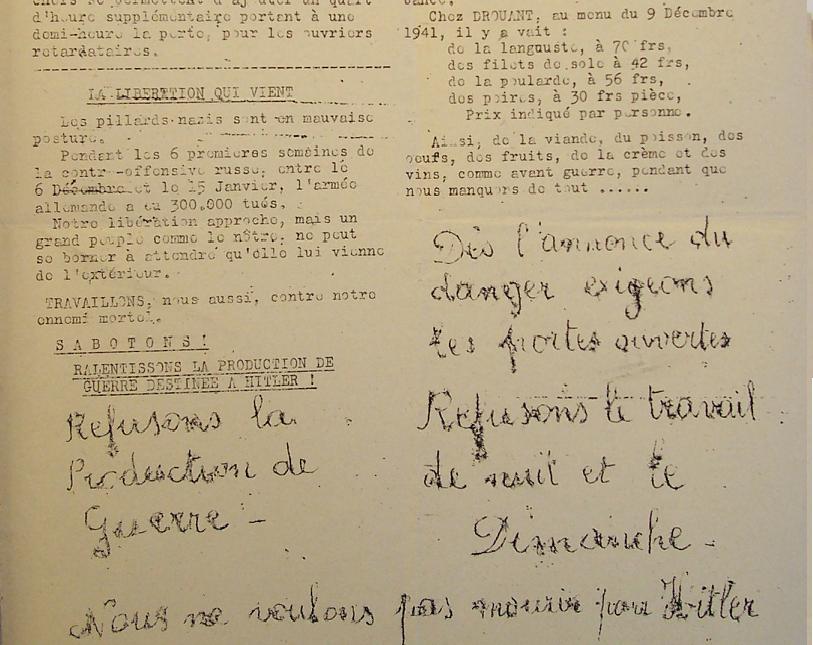 d'heure supplémentaire portant à une
demi-heure la perte, pour les ouvriers
retardataires.
LA LIBERTION QUI VIENT
Les pillards nazis sont en mauvaise
posture.
Pendant les 6 premieres semaines de
la contre-offensive russe, entre le
6 Décembre et le 15 Janvier, l'armée
allemande a eu 300.000 tués.
Notre libération approche, mais un
grand peuple comme le nôtre, ne peut
se borner à attendre qu'elle lui vienne
de l'extérieur.
TRAVAILLONS, nous aussi, contre notre
ennemi mortel.
SABOTONS !
RALENTISSONS LA PRODUCTION DE
GUERRE DESTINEE A HITLER !
Refusons la
Production de
Guerre -
Chez DROUANT, au menu du 9 Décembre
1941, il y avait :
de la langouste, à 70 frs,
des filets de sole à 42 frs,
de la poularde, à 56 frs,
des poires, à 30 frs pièce,
Prix indiqué par personne.
Ainsi, de la viande, du poisson, des
oeufs, des fruits, de la crème et des
vins, comme avant guerre, pendant que
nous manquons de tout ......
Dès l'annonce du
danger exigeons
les portes ouvertes
Refusons le travail
de nuit et le
Dimanche -
Nous ne voulons pas mourir pour Hitler